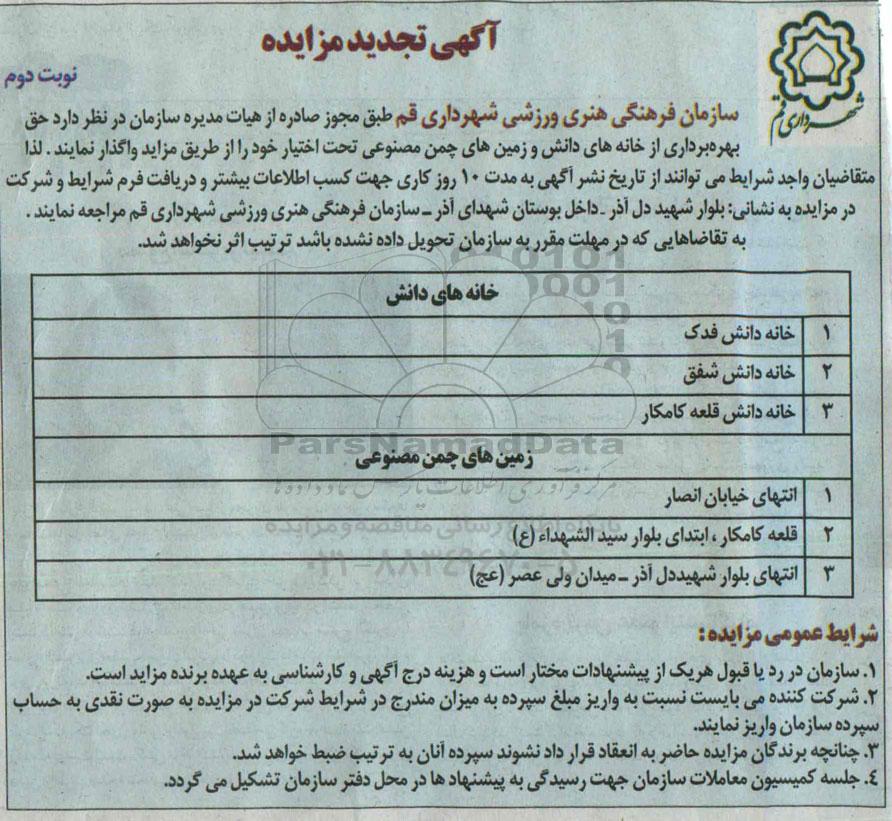 آگهی تجدید مزایده
نوبت دوم
شهرداری قم
سازمان فرهنگی هنری ورزشی شهرداری قم طبق مجوز صادره از هیات مدیره سازمان در نظر دارد حق
بهره‌برداری از خانه های دانش و زمین های چمن مصنوعی تحت اختیار خود را از طریق مزاید واگذار نمایند . لذا
متقاضیان واجد شرایط می توانند از تاریخ نشر آگهی به مدت ۱۰ روز کاری جهت کسب اطلاعات بیشتر و دریافت فرم شرایط و شرکت
در مزایده به نشانی: بلوار شهید دل آذر ـ داخل بوستان شهدای آذر ـ سازمان فرهنگی هنری ورزشی شهرداری قم مراجعه نمایند .
به تقاضاهایی که در مهلت مقرر به سازمان تحویل داده نشده باشد ترتیب اثر نخواهد شد.
خانه های دانش
۱ خانه دانش فدک
۲ خانه دانش شفق
۳ خانه دانش قلعه کامکار
ParsNamadData
زمین های چمن مصنوعی
مرکز فرآوری اطلاعات پارس نماد داده ها
۱ انتهای خیابان انصار
پایگاه اطلاع رسانی مناقصه و مزایده
۲ قلعه کامکار ، ابتدای بلوار سید الشهداء (ع)
۰۲۱-۸۸۳۴۹۶۷۰-۵
۳ انتهای بلوار شهیددل آذر ـ میدان ولی عصر (عج)
شرایط عمومی مزایده :
۱. سازمان در رد یا قبول هریک از پیشنهادات مختار است و هزینه درج آگهی و کارشناسی به عهده برنده مزاید است.
۲. شرکت کننده می بایست نسبت به واریز مبلغ سپرده به میزان مندرج در شرایط شرکت در مزایده به صورت نقدی به حساب
سپرده سازمان واریز نمایند.
۳. چنانچه برندگان مزایده حاضر به انعقاد قرار داد نشوند سپرده آنان به ترتیب ضبط خواهد شد.
٤. جلسه کمیسیون معاملات سازمان جهت رسیدگی به پیشنهاد ها در محل دفتر سازمان تشکیل می گردد.